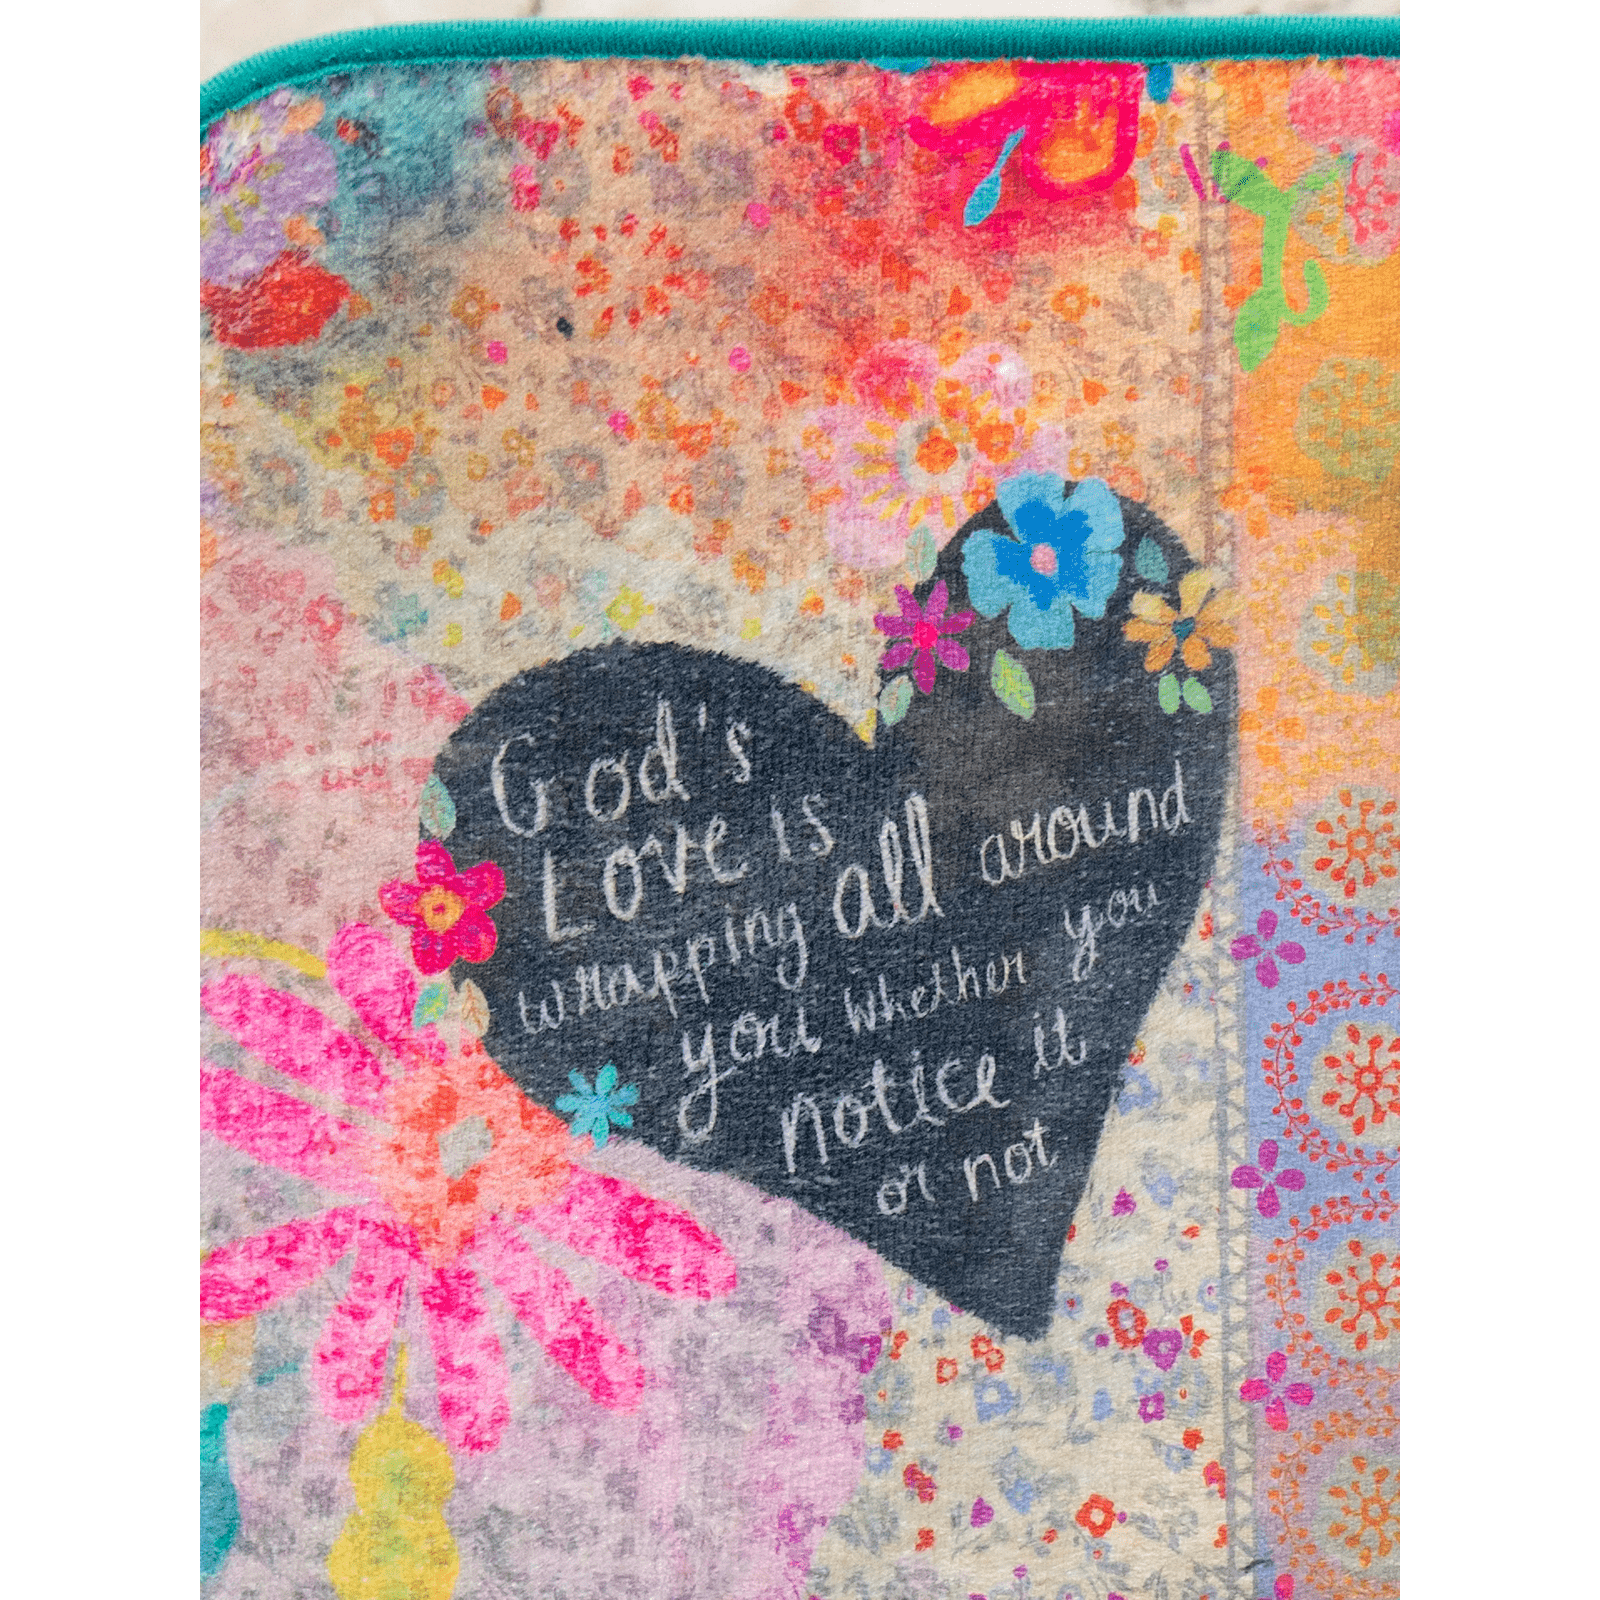 God's
Love is
wrapping all around
you whether you
notice it
or not